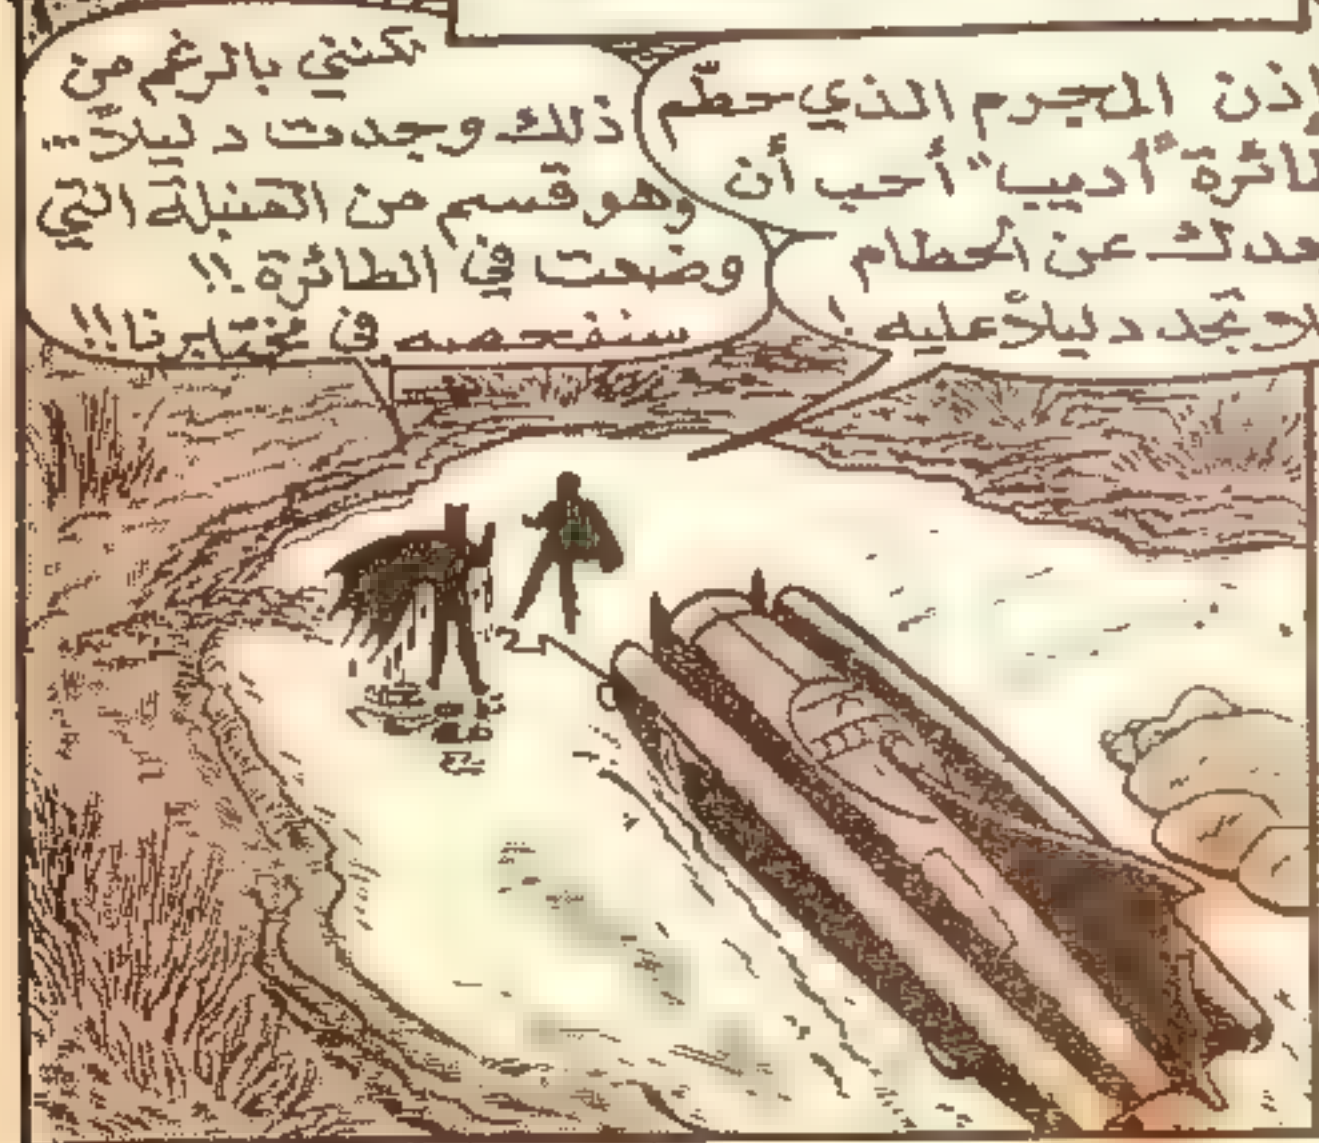 إذن المجرم الذي حطّم
طائرة "أديب" أحب أن
عن الحطام
تجد دليلاً عليه !
لكنني بالرغم من
ذلك وجدت دليلاً...
وهو قسم من القنبلة التي
وضعت في الطائرة !!
سنفحصه في مختبرنا !!